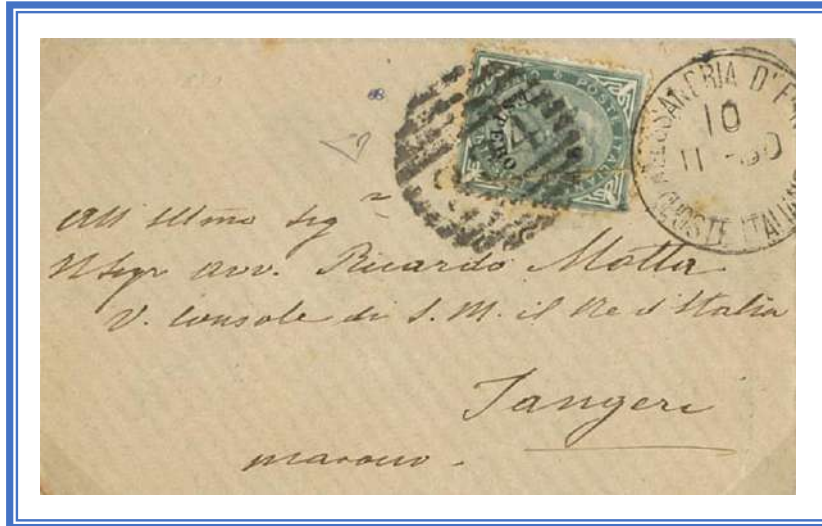 POSTE ITALIANE
ESTERO
ALESSANDRIA D'E
10
11 - 80
POSTE ITALIANE
All Illmo Sig
Il Sigr avv. Ricardo Motta
V. Console di S. M. il Re d'Italia
Tangeri
marocco.